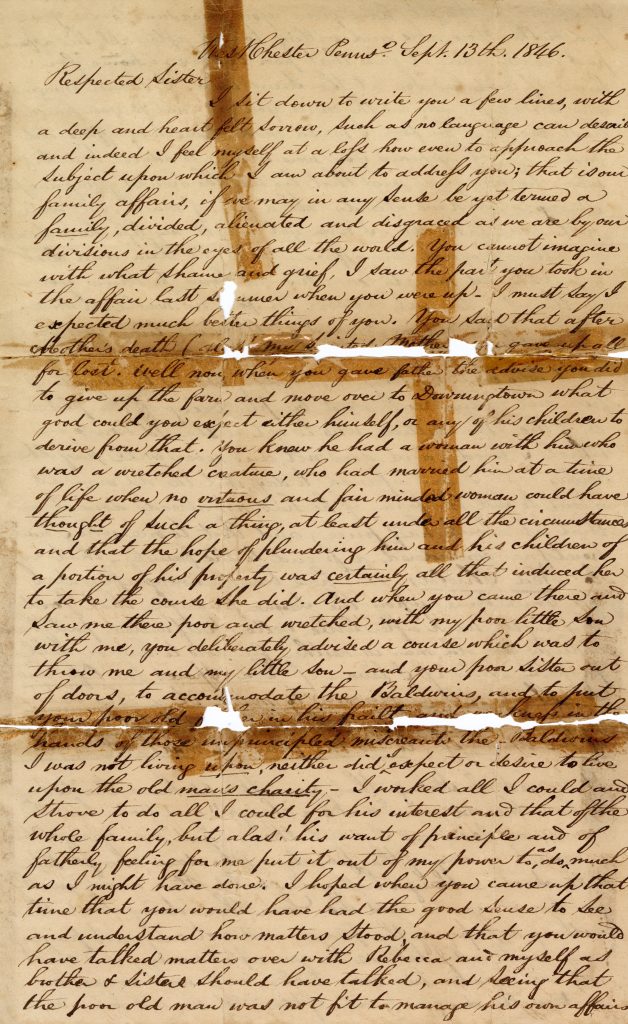 West Chester Penns.a Sept. 13th. 1846.
Respected Sister
I sit down to write you a few lines, with
a deep and heart felt sorrow, such as no language can descri
and indeed I feel myself at a loss how even to approach the
subject upon which I am about to address you; that is our
family affairs, if we may in any sense be yet termed a
family, divided, alienated and disgraced as we are by our
divisions in the eyes of all the world. You cannot imagine
with what shame and grief, I saw the part you took in
the affair last summer when you were up – I must say I
expected much better things of you. You said that after
Mother's death gave up all
for lost. Well now, when you gave father the advise you did
to give up the farm and move over to Downingtown what
good could you expect either himself, or any of his children to
derive from that. You knew he had a woman with him who
was a wretched creature, who had married him at a time
of life when no virtuous and fair minded woman could have
thought of such a thing, at least under all the circumstances
and that the hope of plundering him and his children of
a portion of his property was certainly all that induced her
to take the course she did. And when you came there and
saw me there poor and wretched, with my poor little son
with me, you deliberately advised a course which was to
throw me and my little son – and your poor sister out
of doors, to accommodate the Baldwins, and to put
your poor old in his frailty and in the
hands of those unprincipled miscreants the Baldwins
I was not living upon, neither did I expect or desire to live
upon the old man's charity – I worked all I could and
strove to do all I could for his interest and that of the
whole family, but alas! his want of principle and of
fatherly feeling for me put it out of my power to do, as much
as I might have done. I hoped when you came up that
time that you would have had the good sense to see
and understand how matters stood, and that you would
have talked matters over with Rebecca and myself as
brother & sisters should have talked, and seeing that
the poor old man was not fit to manage his own affairs